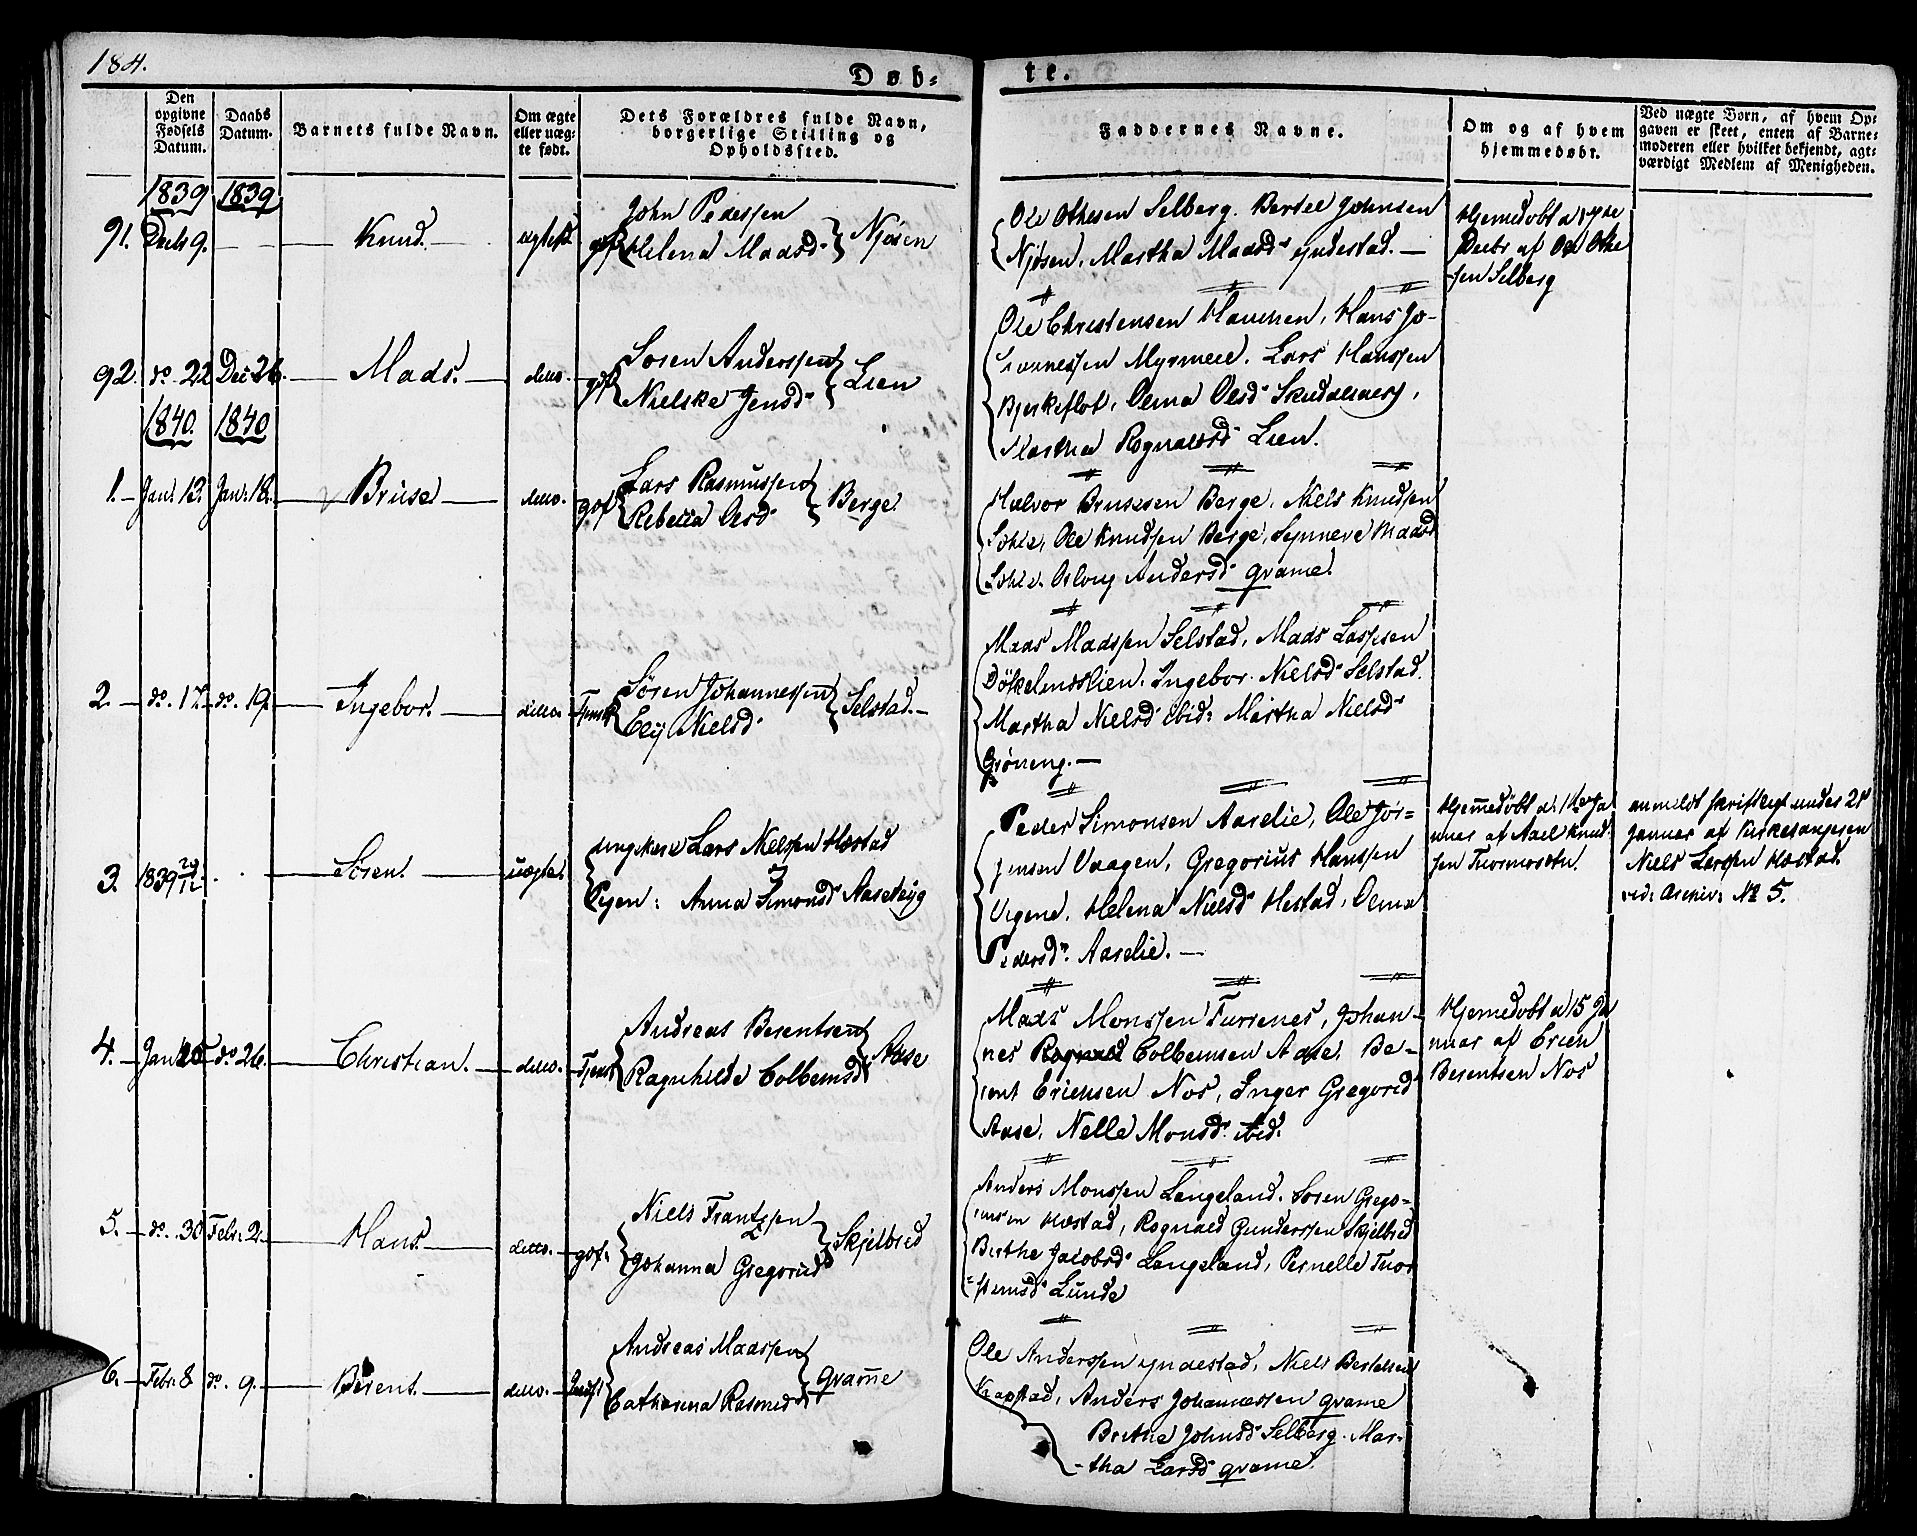 184.
Døb-
te.
Den opgivne Fødsels Datum.
Daabs Datum.
Barnets fulde Navn.
Om ægte eller uæg-te født.
Dets Forældres fulde Navn, borgerlige Stilling og Opholdssted.
Faddernes Navne.
Om og af hvem hjemmedøbt.
Ved uægte Børn, af hvem Op-
gaven er skeet, enten af Barne-
moderen eller hvilket bekjendt, agt-
værdigt Medlem af Menigheden.
1839 1839
91. Decbr 9. — — Knud. — ægtefd.
John Pederssen
gbf Helena Maasd. Njøsen
Ole Othesen Selberg. Bertel Johnsen
Njøsen, Martha Maasd. Yndestad. —
Hjemedøbt d.
Decbr af Ole Othe
sen Selberg
92. do. 22 Dec 26. — Mads. — ditto.
Søren Anderssen
Nielske Jensd. Lien
Ole Christensen Haucken, Hans Jo-
hannessen Myrmele. Lars Hanssen
Bjerkeflot, Olina Olsd.
Martha Rognaldsd. Lien.
1840. 1840
1. — Jan. 12. Jan. 18. — Bruse — ditto.
Lars Rasmussen
Rebecca Olsd. Berge.
Halvor Brusesen Berge, Niels Knudsen
Sohle, Ole Knudsen Berge, Synneve Maasd.
Sohle. Oslaug Andersd. Qvame.
2. — do. 17. do. 19. — Ingebor. — ditto.
Søren Johannessen
Eli Nielsd. Selstad. —
Maas Madssen Selstad, Mads Larssen
Døkelendslien. Ingebor. Nielsd. Selstad.
Martha Nielsd. ibid: Martha Nielsd.
Grøneng. —
3. 1839 29/12. Søren. uægte.
ungkarl Lars Nielssen Hæstad
og
Pigen: Anna Simonsd. Aasebyg
Peder Simonsen Aarelie, Ole Jør-
gensen Vaagen, Gregorius Hanssen
Vigene, Helena Nielsd. Hestad, Olina
Pedersd. Aarelie. —
Hjemedøbt d. 1ste Ja
nuar af Axel Knud-
sen
anmeldt skriftligt under 25
Januar af Kirkesangeren
Niels Larssen Hæstad.
vid: Archiv: No 5.
4. — Jan 15 do 26. — Christian. — ditto.
Andreas Berentsen
Ragnhilde Colbensd. Aase
Mads Monssen Furrenes, Johan-
nes Rognald Colbensen Aase, Be-
rent Ericksen Nos, Inger Gregorsd.
Aase, Nelle Monsd. ibid.
Hjemedøbt d 15 Ja
nuar af Erick
Berentsen Nos
5. — do. 30 Febr. 2. — Hans. — ditto. gbf.
Niels Frantzsen
Johanna Gregorisd. Skjelbred
Anders Monssen Langeland. Søren Grego-
riusen Hæstad, Rognald Gunderssen Skjelbred
Birthe Jacobsd. Langeland, Pernelle Thor
stensd. Lunde
6. — Febr. 8 do. 9. — Berent. — ditto.
Andreas Maassen
Catharina Rasmusd. Qvame
Ole Anderssen Yndestad, Niels Bertelssen
Krapstad, Anders Johannessen Qvame
Birthe Johnsd. Selberg. Mar-
tha Larsd. Qvame.